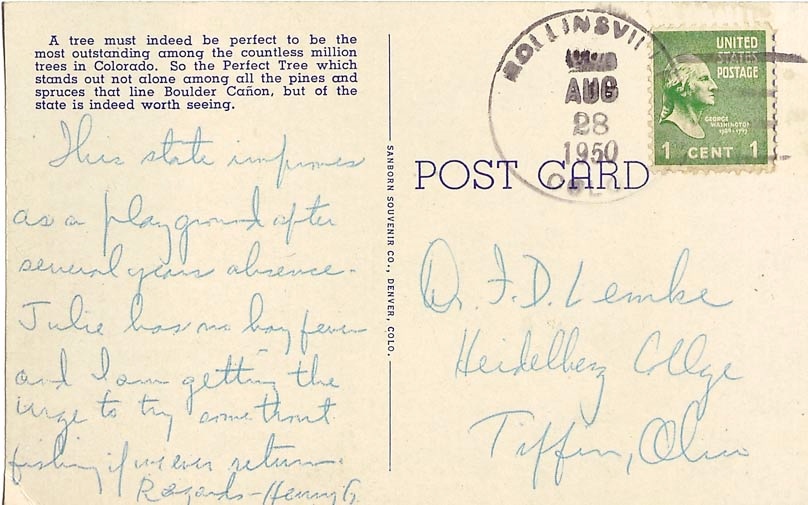 A tree must indeed be perfect to be the
most outstanding among the countless million
trees in Colorado. So the Perfect Tree which
stands out not alone among all the pines and
spruces that line Boulder Cañon, but of the
state is indeed worth seeing.
This state improves
as a playground after
several years absence.
Julie has no hay fever
and I am getting the
urge to try some trout
fishing if we ever return.
Regards - Henry G.
SANBORN SOUVENIR CO., DENVER, COLO.
ROLLINSVIL
AUG
28
1950
COLO
UNITED
STATES
POSTAGE
GEORGE
WASHINGTON
1789-1797
1 CENT 1
POST CARD
Dr. F. D. Lemke
Heidelberg Collge
Tiffin, Ohio